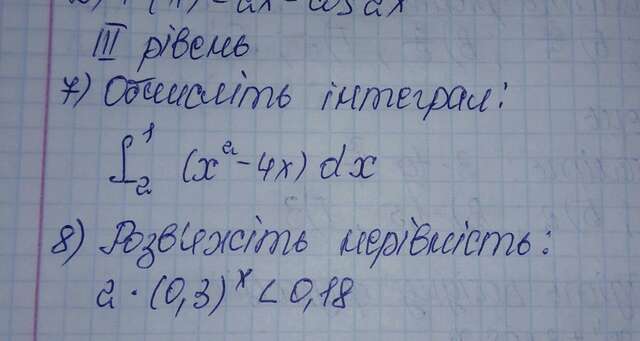 = 2x - cos 2x
III рівень
7) Обчисліть інтеграл:
∫₂¹ (x² - 4x) dx
8) Розв'яжіть нерівність:
2 · (0,3)ˣ < 0,18